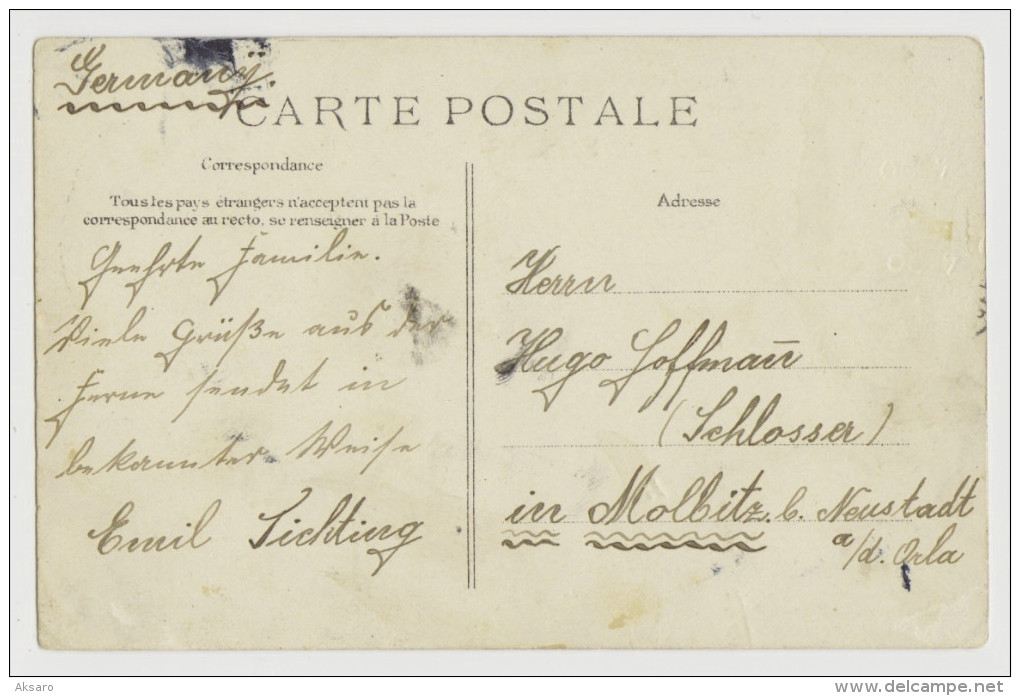 Germany.
CARTE POSTALE
Correspondance
Tous les pays étrangers n'acceptent pas la
correspondance au recto, se renseigner à la Poste
Geehrte Familie.
Viele Grüße aus der
Ferne sendet in
bekannter Weise
Emil Sichting
Adresse
Herrn
Hugo Hoffman̄
(Schlosser)
in Molbitz. b. Neustadt
a/d. Orla
Aksaro
delcampe.net